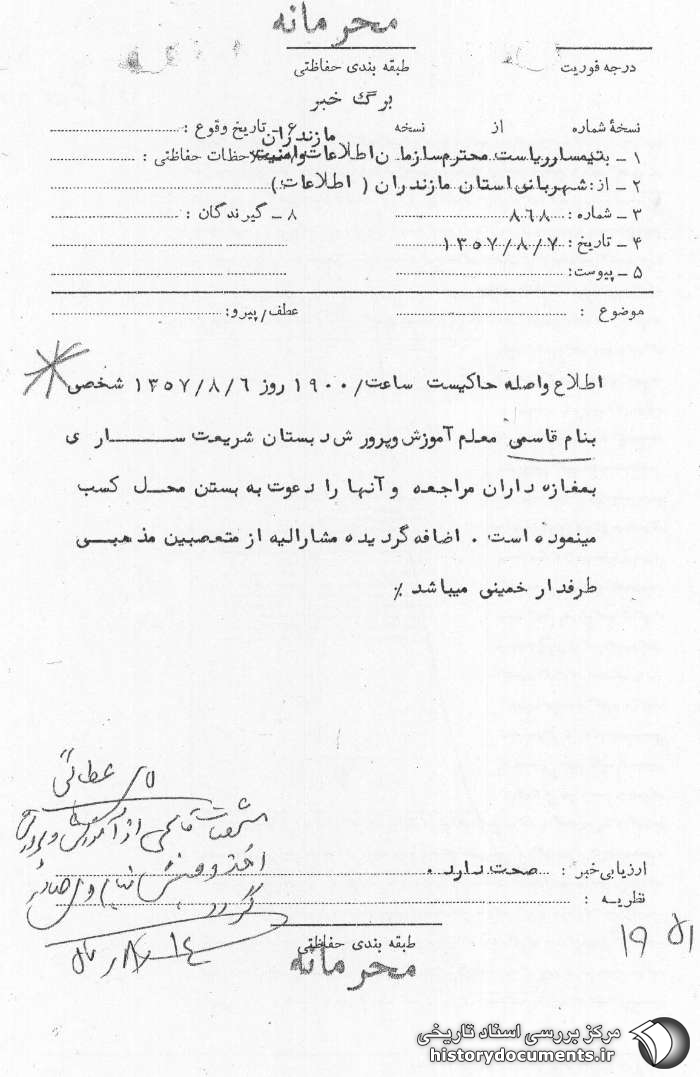 محرمانه
طبقه بندی حفاظتی
درجه فوریت
برگ خبر
نسخهٔ شماره از نسخه
۶ – تاریخ وقوع :
مازندران
۱ – بتیمسار ریاست محترم سازمان اطلاعات و امنیت
ملاحظات حفاظتی :
۲ – از : شهربانی استان مازندران ( اطلاعات )
۳ – شماره : ۸۶۸
۸ – گیرندگان :
۴ – تاریخ : ۱۳۵۷/۸/۷
۵ – پیوست:
موضوع :
عطف/پیرو:
اطلاع واصله حاکیست ساعت/۱۹۰۰ روز ۱۳۵۷/۸/۶ شخصی
بنام قاسمی معلم آموزش وپرورش دبستان شریعت ســـاری
بمغازه داران مراجعه وآنها را دعوت به بستن محل کسب
مینموده است . اضافه گردیده مشارالیه از متعصبین مذهبــی
طرفدار خمینی میباشد ٪
قاسمی از آموزش و پرورش
گردد
ارزیابی خبر : صحت دارد .
نظریه :
طبقه بندی حفاظتی
محرمانه
مرکز بررسی اسناد تاریخی
historydocuments.ir